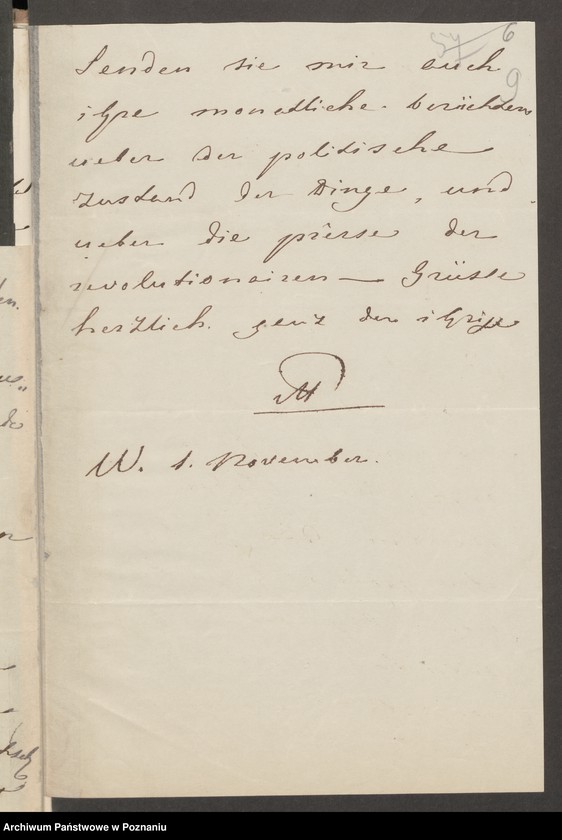 57 6
9
Senden sie mir auch
ihre monatliche berüchten
ueber der politische
Zustand der Dinge, und
ueber die prêsse der
revolutionairen — Grüsse
herzlich. ganz der ihrige
M
W. 1. November.
Archiwum Państwowe w Poznaniu